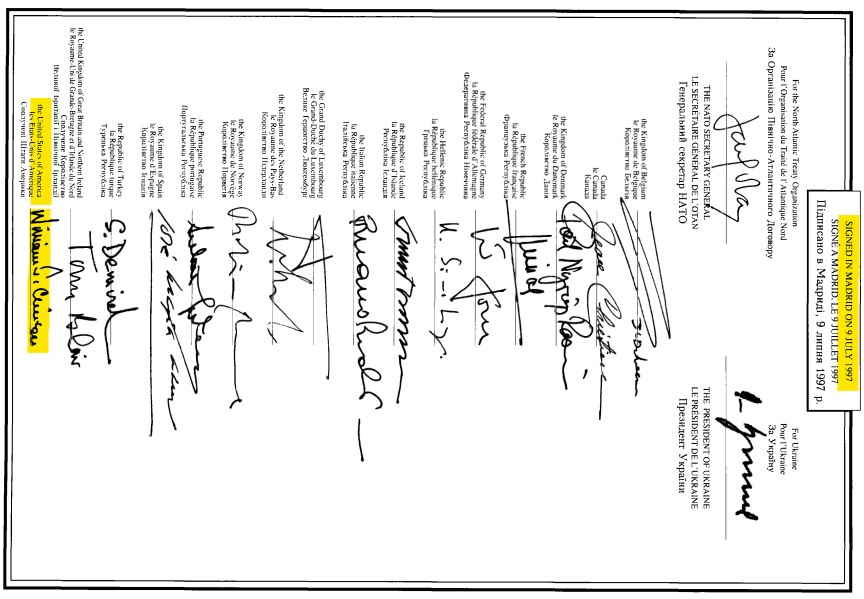 SIGNED IN MADRID ON 9 JULY 1997
SIGNÉ A MADRID, LE 9 JUILLET 1997
Підписано в Мадриді, 9 липня 1997 р.
For the North Atlantic Treaty Organization
Pour l'Organisation du Traité de l'Atlantique Nord
За Організацію Північно-Атлантичного Договору
For Ukraine
Pour l'Ukraine
За Україну
THE NATO SECRETARY GENERAL
LE SECRÉTAIRE GÉNÉRAL DE L'OTAN
Генеральний секретар НАТО
THE PRESIDENT OF UKRAINE
LE PRÉSIDENT DE L'UKRAINE
Президент України
the Kingdom of Belgium
le Royaume de Belgique
Королівство Бельгія
Canada
le Canada
Канада
the Kingdom of Denmark
le Royaume du Danemark
Королівство Данія
the French Republic
la République française
Французька Республіка
the Federal Republic of Germany
la République fédérale d'Allemagne
Федеративна Республіка Німеччина
the Hellenic Republic
la République hellénique
Грецька Республіка
the Republic of Iceland
la République d'Islande
Республіка Ісландія
the Italian Republic
la République italienne
Італійська Республіка
the Grand Duchy of Luxembourg
le Grand-Duché du Luxembourg
Велике Герцогство Люксембург
the Kingdom of the Netherlands
le Royaume des Pays-Bas
Королівство Нідерланди
the Kingdom of Norway
le Royaume de Norvège
Королівство Норвегія
the Portuguese Republic
la République portugaise
Португальська Республіка
the Kingdom of Spain
le Royaume d'Espagne
Королівство Іспанія
the Republic of Turkey
la République turque
Турецька Республіка
S. Demirel
the United Kingdom of Great Britain and Northern Ireland
le Royaume-Uni de Grande-Bretagne et d'Irlande du Nord
Сполучене Королівство
Великої Британії і Північної Ірландії
Tony Blair
the United States of America
les Etats-Unis d'Amérique
Сполучені Штати Америки